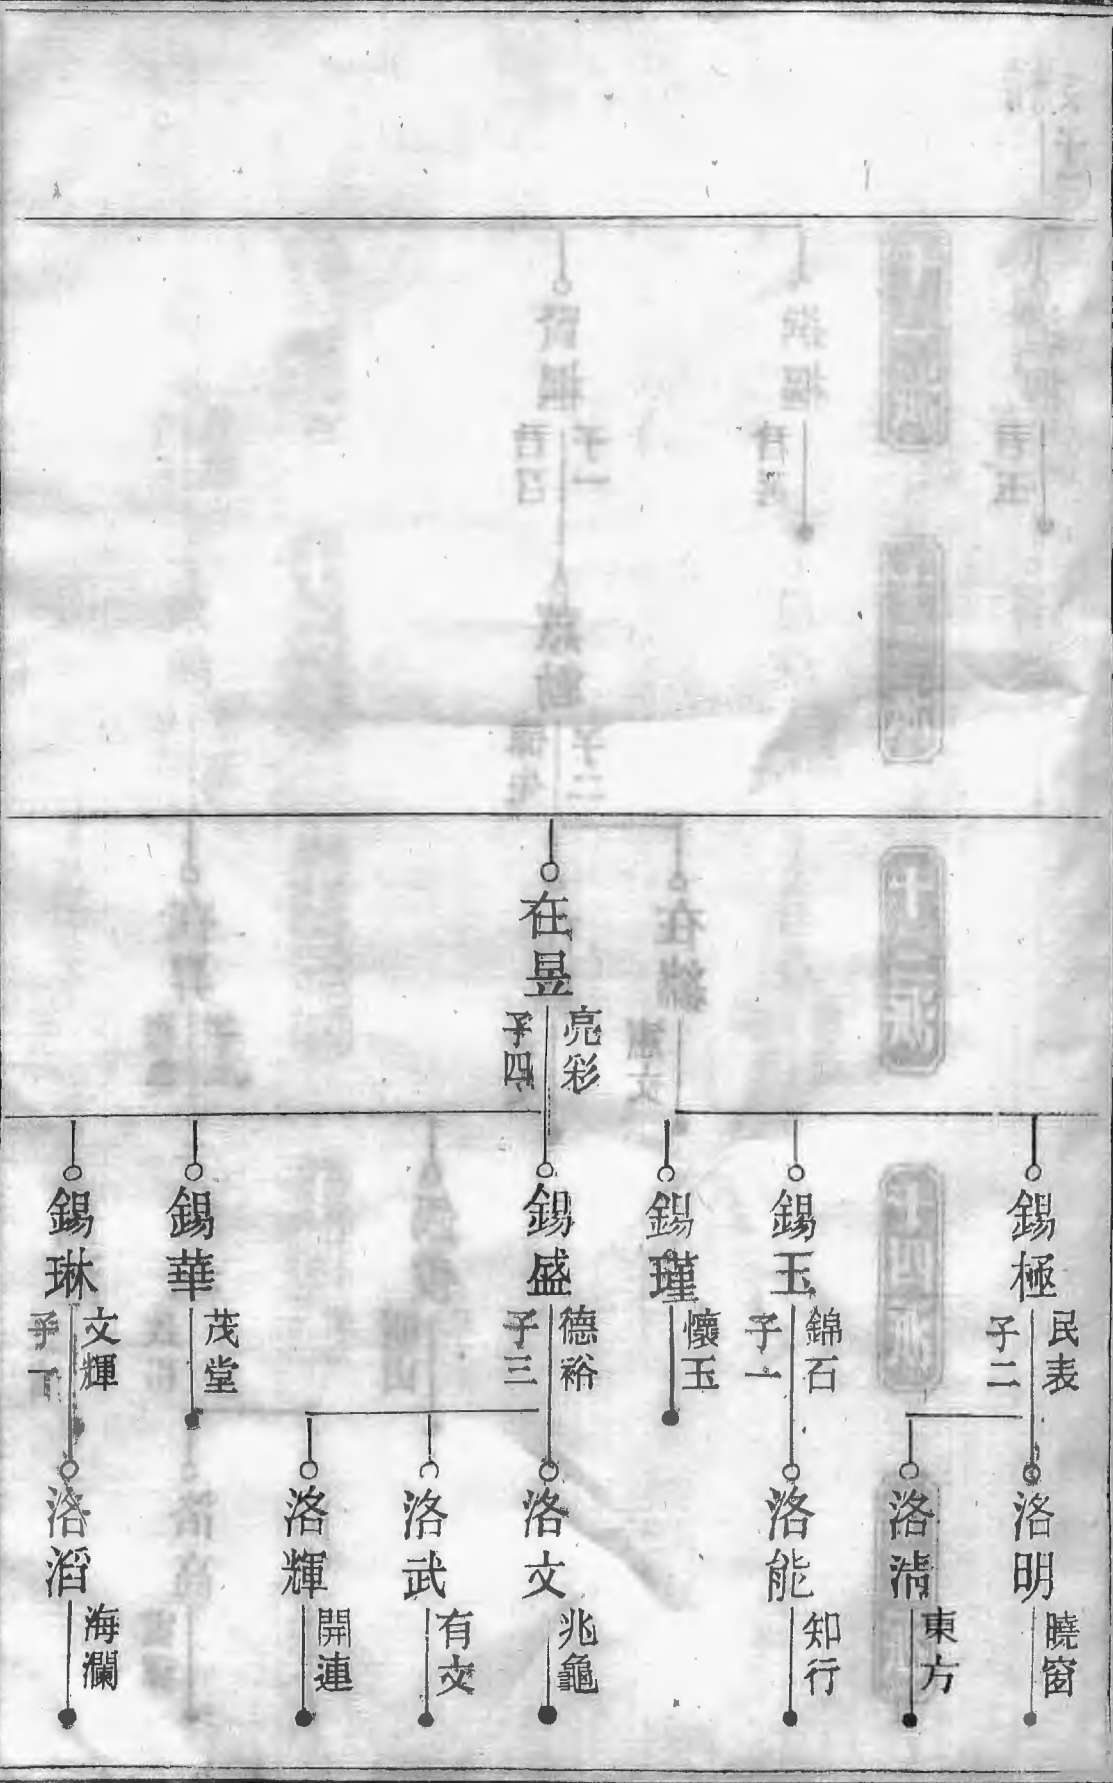 在昱
亮彩
子四
錫極
民表
子二
錫玉
錦石
子一
錫瑾
懷玉
錫盛
德裕
子三
錫華
茂堂
錫琳
文輝
子一
洛明
曉窗
洛清
東方
洛能
知行
洛文
兆龜
洛武
有文
洛輝
開連
洛滔
海瀾